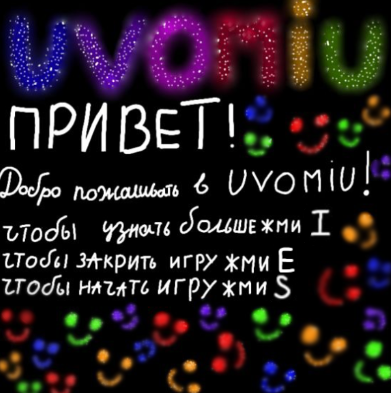 uvomiu
ПРИВЕТ!
Добро пожаливать в UVOMIU!
чтобы узнать больше жми I
чтобы ЗАКРИТЬ игру жми E
чтобы начать игру жми S